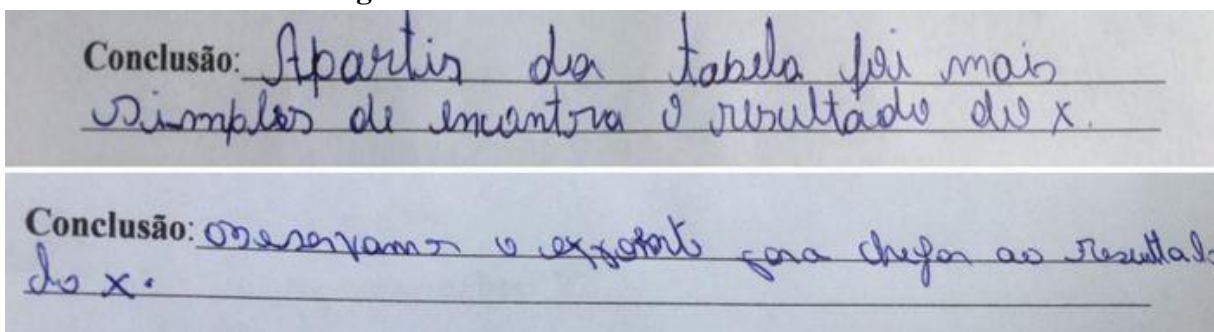 Conclusão: Apartir da tabela foi mais
simples de encontra o resultado do x.
Conclusão: observamos o expoente para chegar ao resultado
do x.